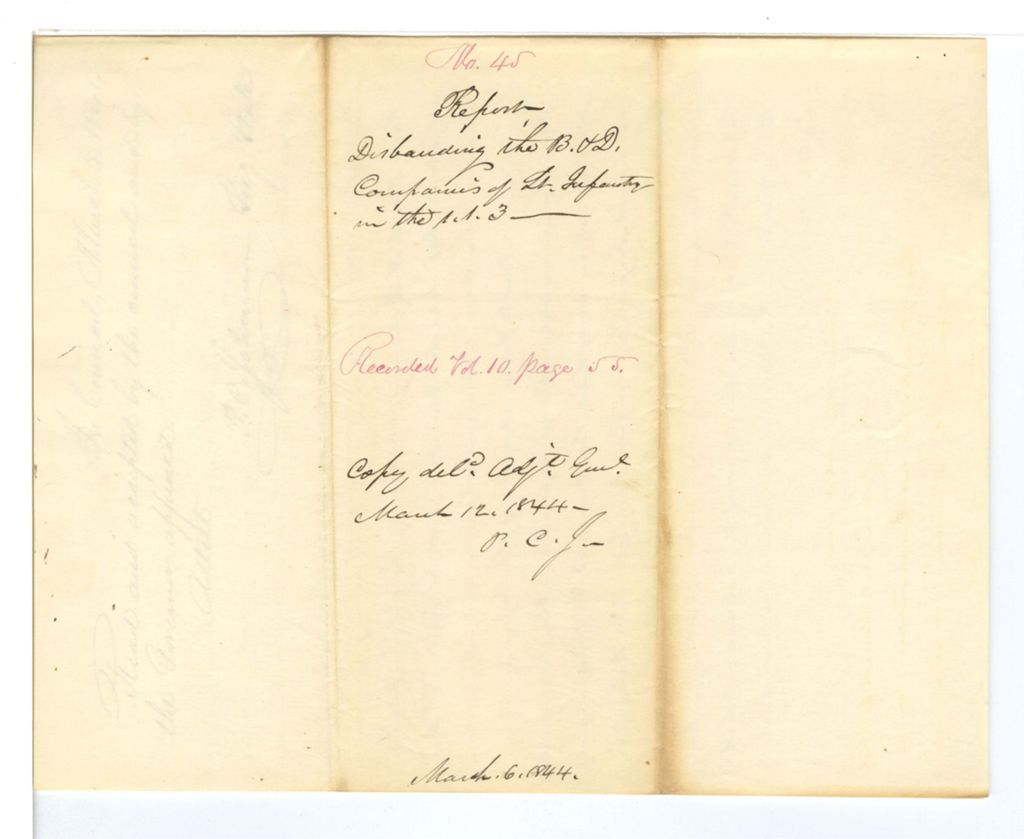 No. 45
Report
Disbanding the B. & D.
Companies of Lt. Infantry
in the 1.1.3
Recorded Vol. 10. page 55.
Copy deld. Adjt. Genl.
March 12. 1844
P. C. J.
March. 6. 1844.
In Council,
Read and accepted by the council and by
the Governor approved.
Attest.